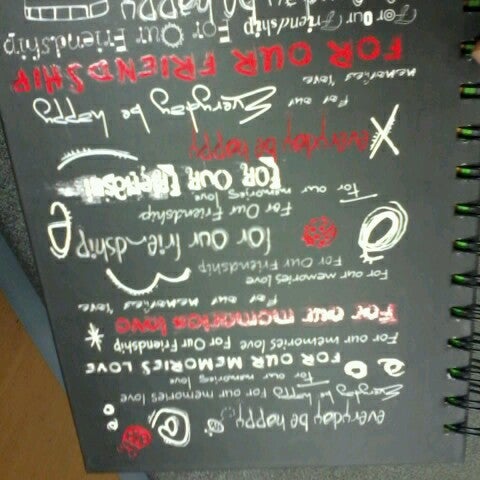 everyday be happy
Everyday be happy For our memories love
for our memories love
FOR OUR MEMORIES LOVE
For our memories love For Our Friendship
For our memories love
for our memories love
For our memories love
For Our Friendship
for Our friendship
For Our Friendship
For our memories love
FOR OUR
everyday be happy
Everyday be happy
for our
memories love
FOR OUR FRIENDSHIP
For Our Friendship For Our Friendship
be happy